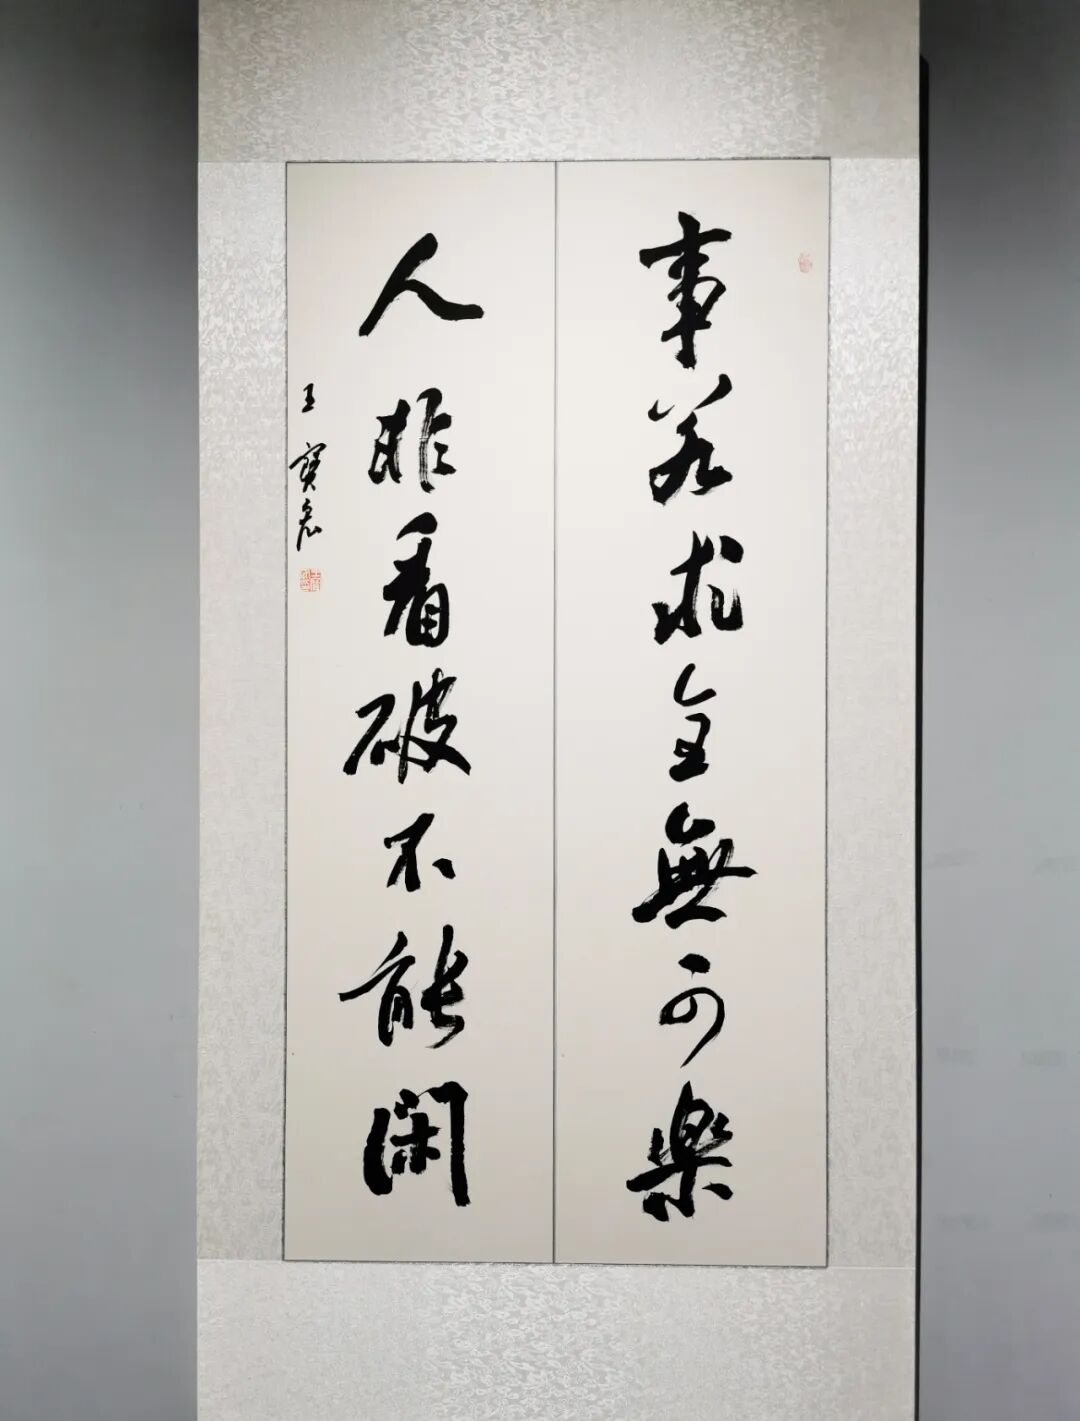 事若求全無可樂
人非看破不能閑
王寶